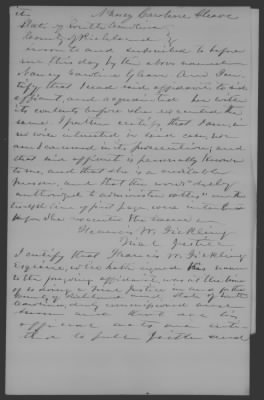 it. Nancy Caroline Gleave
State of South Carolina
County of Richland
Sworn to and subscribed to before
me this day by the above named
Nancy Caroline Gleave and I cer-
tify that I read said affidavit to said
affiant, and acquainted her with
its contents before she executed the
same. I further certify that I am in
no wise interested in said case, nor
am I concerned in its prosecution; and
that said affiant is personally known
to me, and that she is a creditable
person, and that the words "duly
authorized to administer oaths" in the
twelfth line of first page were
before she executed the same
Francis W. Fickling
Trial Justice
I certify that Francis W. Fickling
Esquire, who hath signed his name
to the foregoing affidavit, was at the time
of so doing a Trial Justice in and for the
County of Richland and State of South
Carolina, duly commissioned and
sworn and that all his
official acts are enti-
tled to full faith and